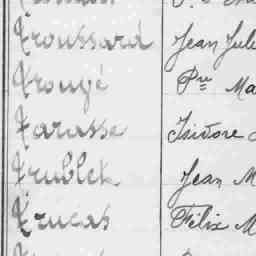 Troussard Jean Jule
Trougé Pre Ma
Tarasse Isidore
Trublet Jean M
Trucas Félix M